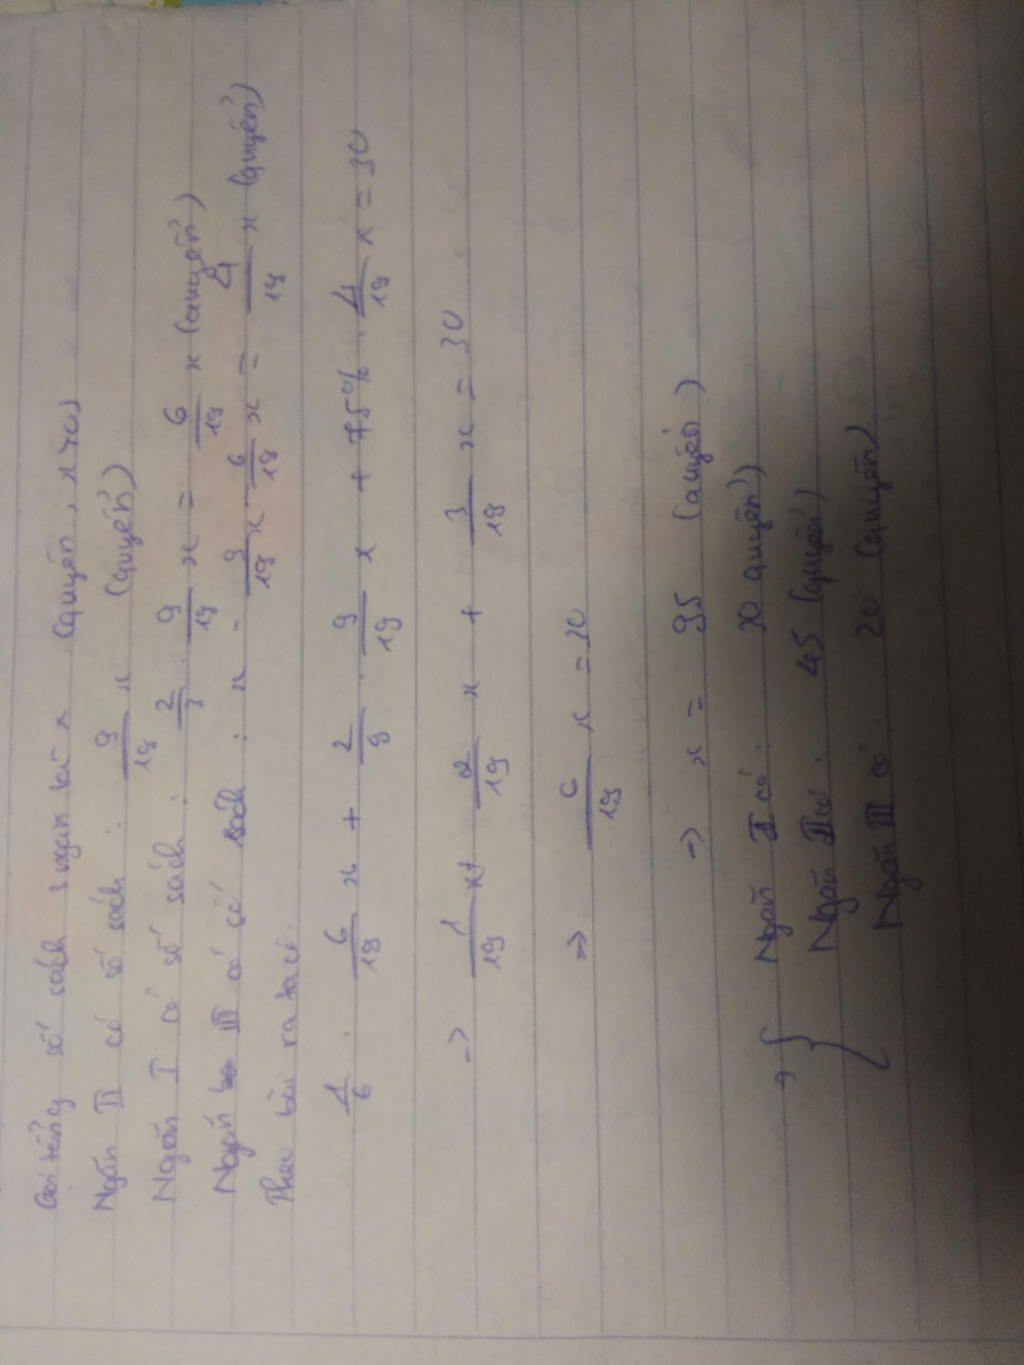 Gọi tổng số sách 3 ngăn là x (quyển, x > 0)
Ngăn II có số sách : 9/19 x (quyển)
Ngăn I có số sách : 2/3 . 9/19 x = 6/19 x (quyển)
Ngăn III có số sách : x - 9/19 x - 6/19 x = 4/19 x (quyển)
Theo bài ra ta có.
1/6 . 6/19 x + 2/9 . 9/19 x + 75% . 4/19 x = 30
-> 1/19 x + 2/19 x + 3/19 x = 30
=> 6/19 x = 30
-> x = 95 (quyển)
, { Ngăn I có . 30 quyển)
Ngăn II có . 45 (quyển)
Ngăn III có . 20 (quyển)